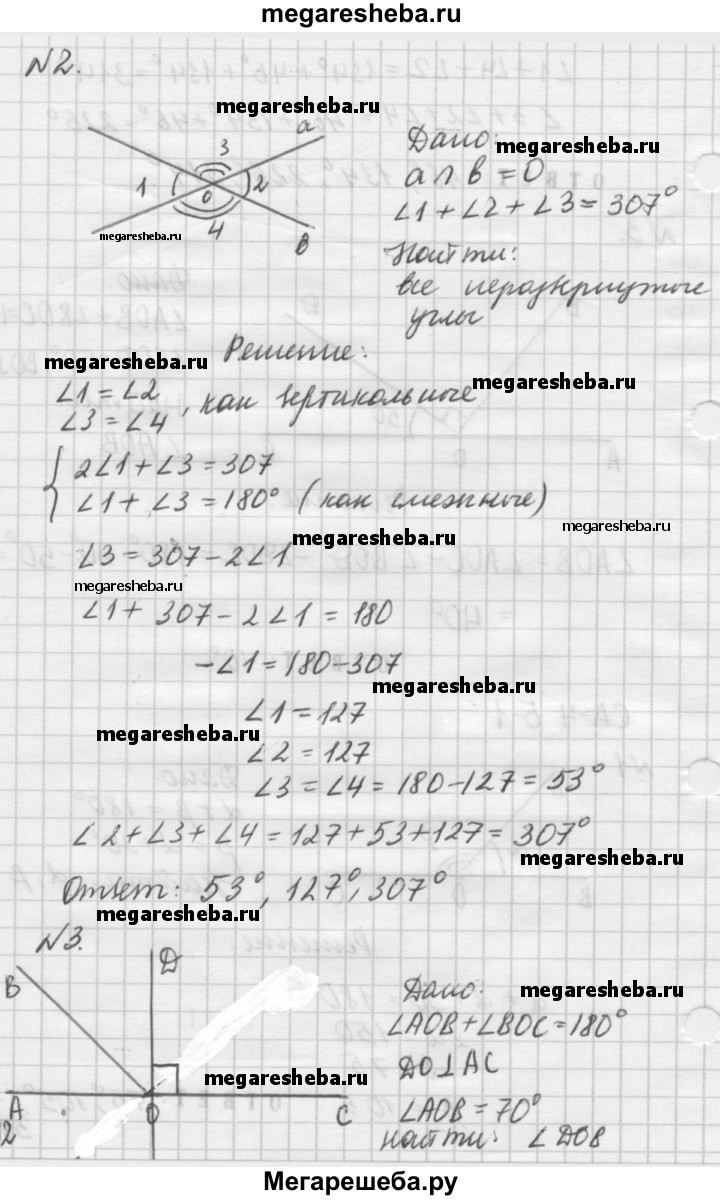 megaresheba.ru
N2.
megaresheba.ru
a
3
1
2
0
4
megaresheba.ru
в
Дано: megaresheba.ru
a ∩ в = 0
∠1 + ∠2 + ∠3 = 307°
Найти:
все неразвернутые
углы
megaresheba.ru Решение:
∠1 = ∠2
∠3 = ∠4 , как вертикальные megaresheba.ru
2∠1 + ∠3 = 307
∠1 + ∠3 = 180° (как смежные)
megaresheba.ru
∠3 = 307 - 2∠1 megaresheba.ru
megaresheba.ru
∠1 + 307 - 2∠1 = 180
-∠1 = 180 - 307
megaresheba.ru
∠1 = 127
megaresheba.ru
∠2 = 127
∠3 = ∠4 = 180 - 127 = 53°
∠2 + ∠3 + ∠4 = 127 + 53 + 127 = 307°
megaresheba.ru
Ответ: 53°, 127°, 307°
megaresheba.ru
N3.
D
B
A
O
C
2
megaresheba.ru
Дано: megaresheba.ru
∠AOB + ∠BOC = 180°
DO ⊥ AC
∠AOB = 70°
найти: ∠DOB
Мегарешеба.ру